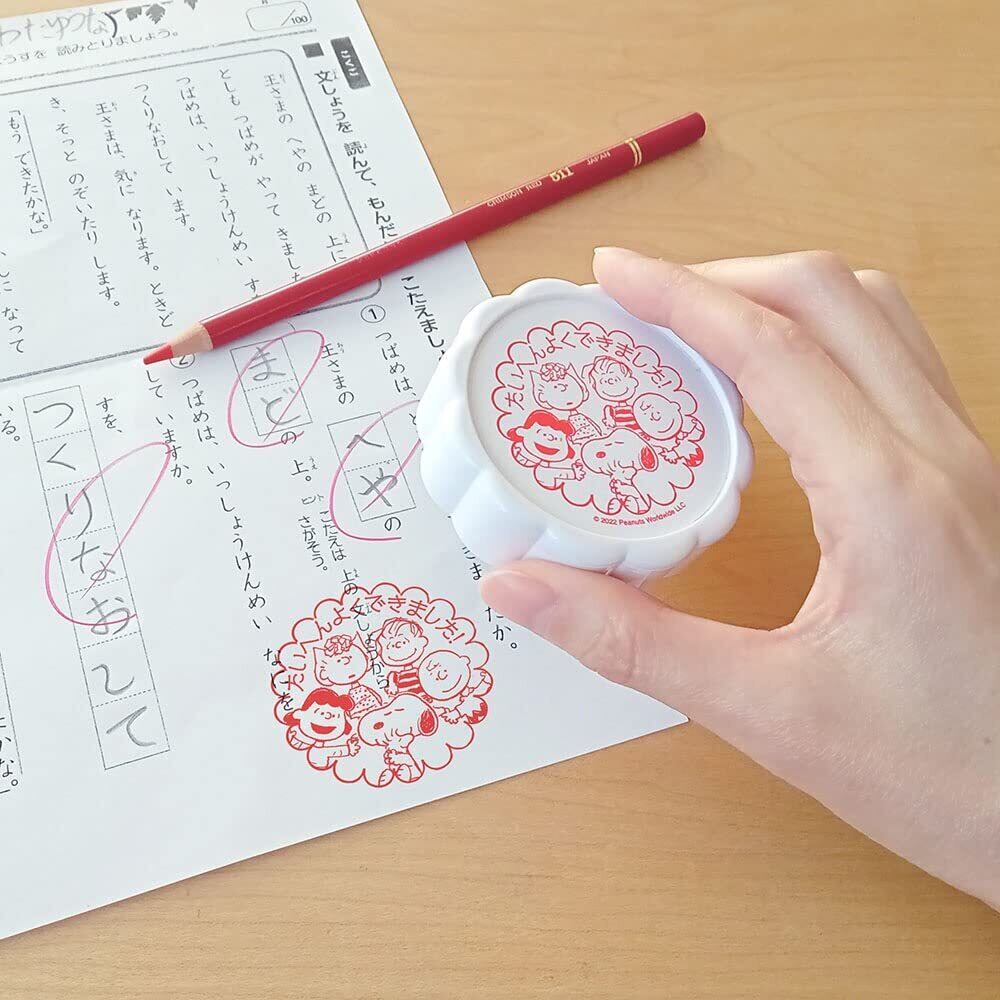 わたゆうな
/100
うすを 読みとりましょう。
こくご
文しょうを 読んで、もんだ
こたえまし
王さまの へやの まどの 上に
としも つばめが やって きまし
つばめは、いっしょうけんめい す
つくりなおして います。
王さまは、気に なります。ときど
き、そっと のぞいたり します。
「もう できたかな。」
なって
① つばめは、
きま
たか。
王さまの
へや
の
まど
の 上。
こたえは 上の 文しょうから
さがそう。
ヒント
② つばめは、いっしょうけんめい なにを
して いますか。
すを、
つくりなおして
いる。
かな。」
CRIMSON RED 511 JAPAN
たいへんよくできました!
© 2022 Peanuts Worldwide LLC
たいへんよくできました!